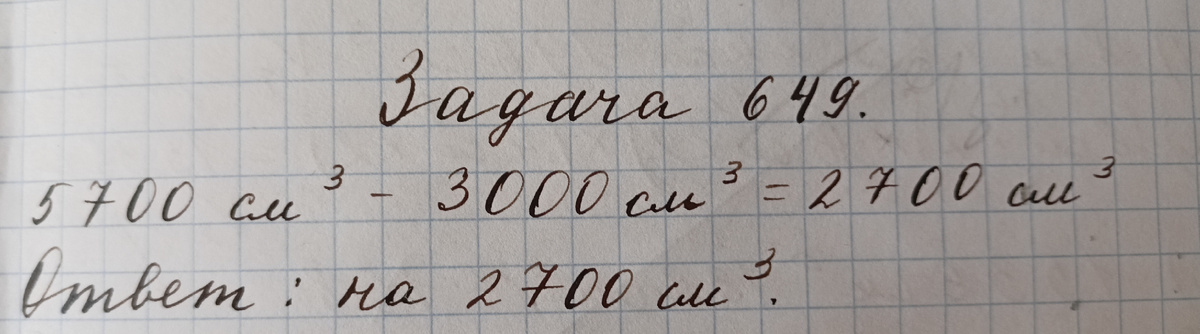 Задача 649.
5700 см³ - 3000 см³ = 2700 см³
Ответ: на 2700 см³.